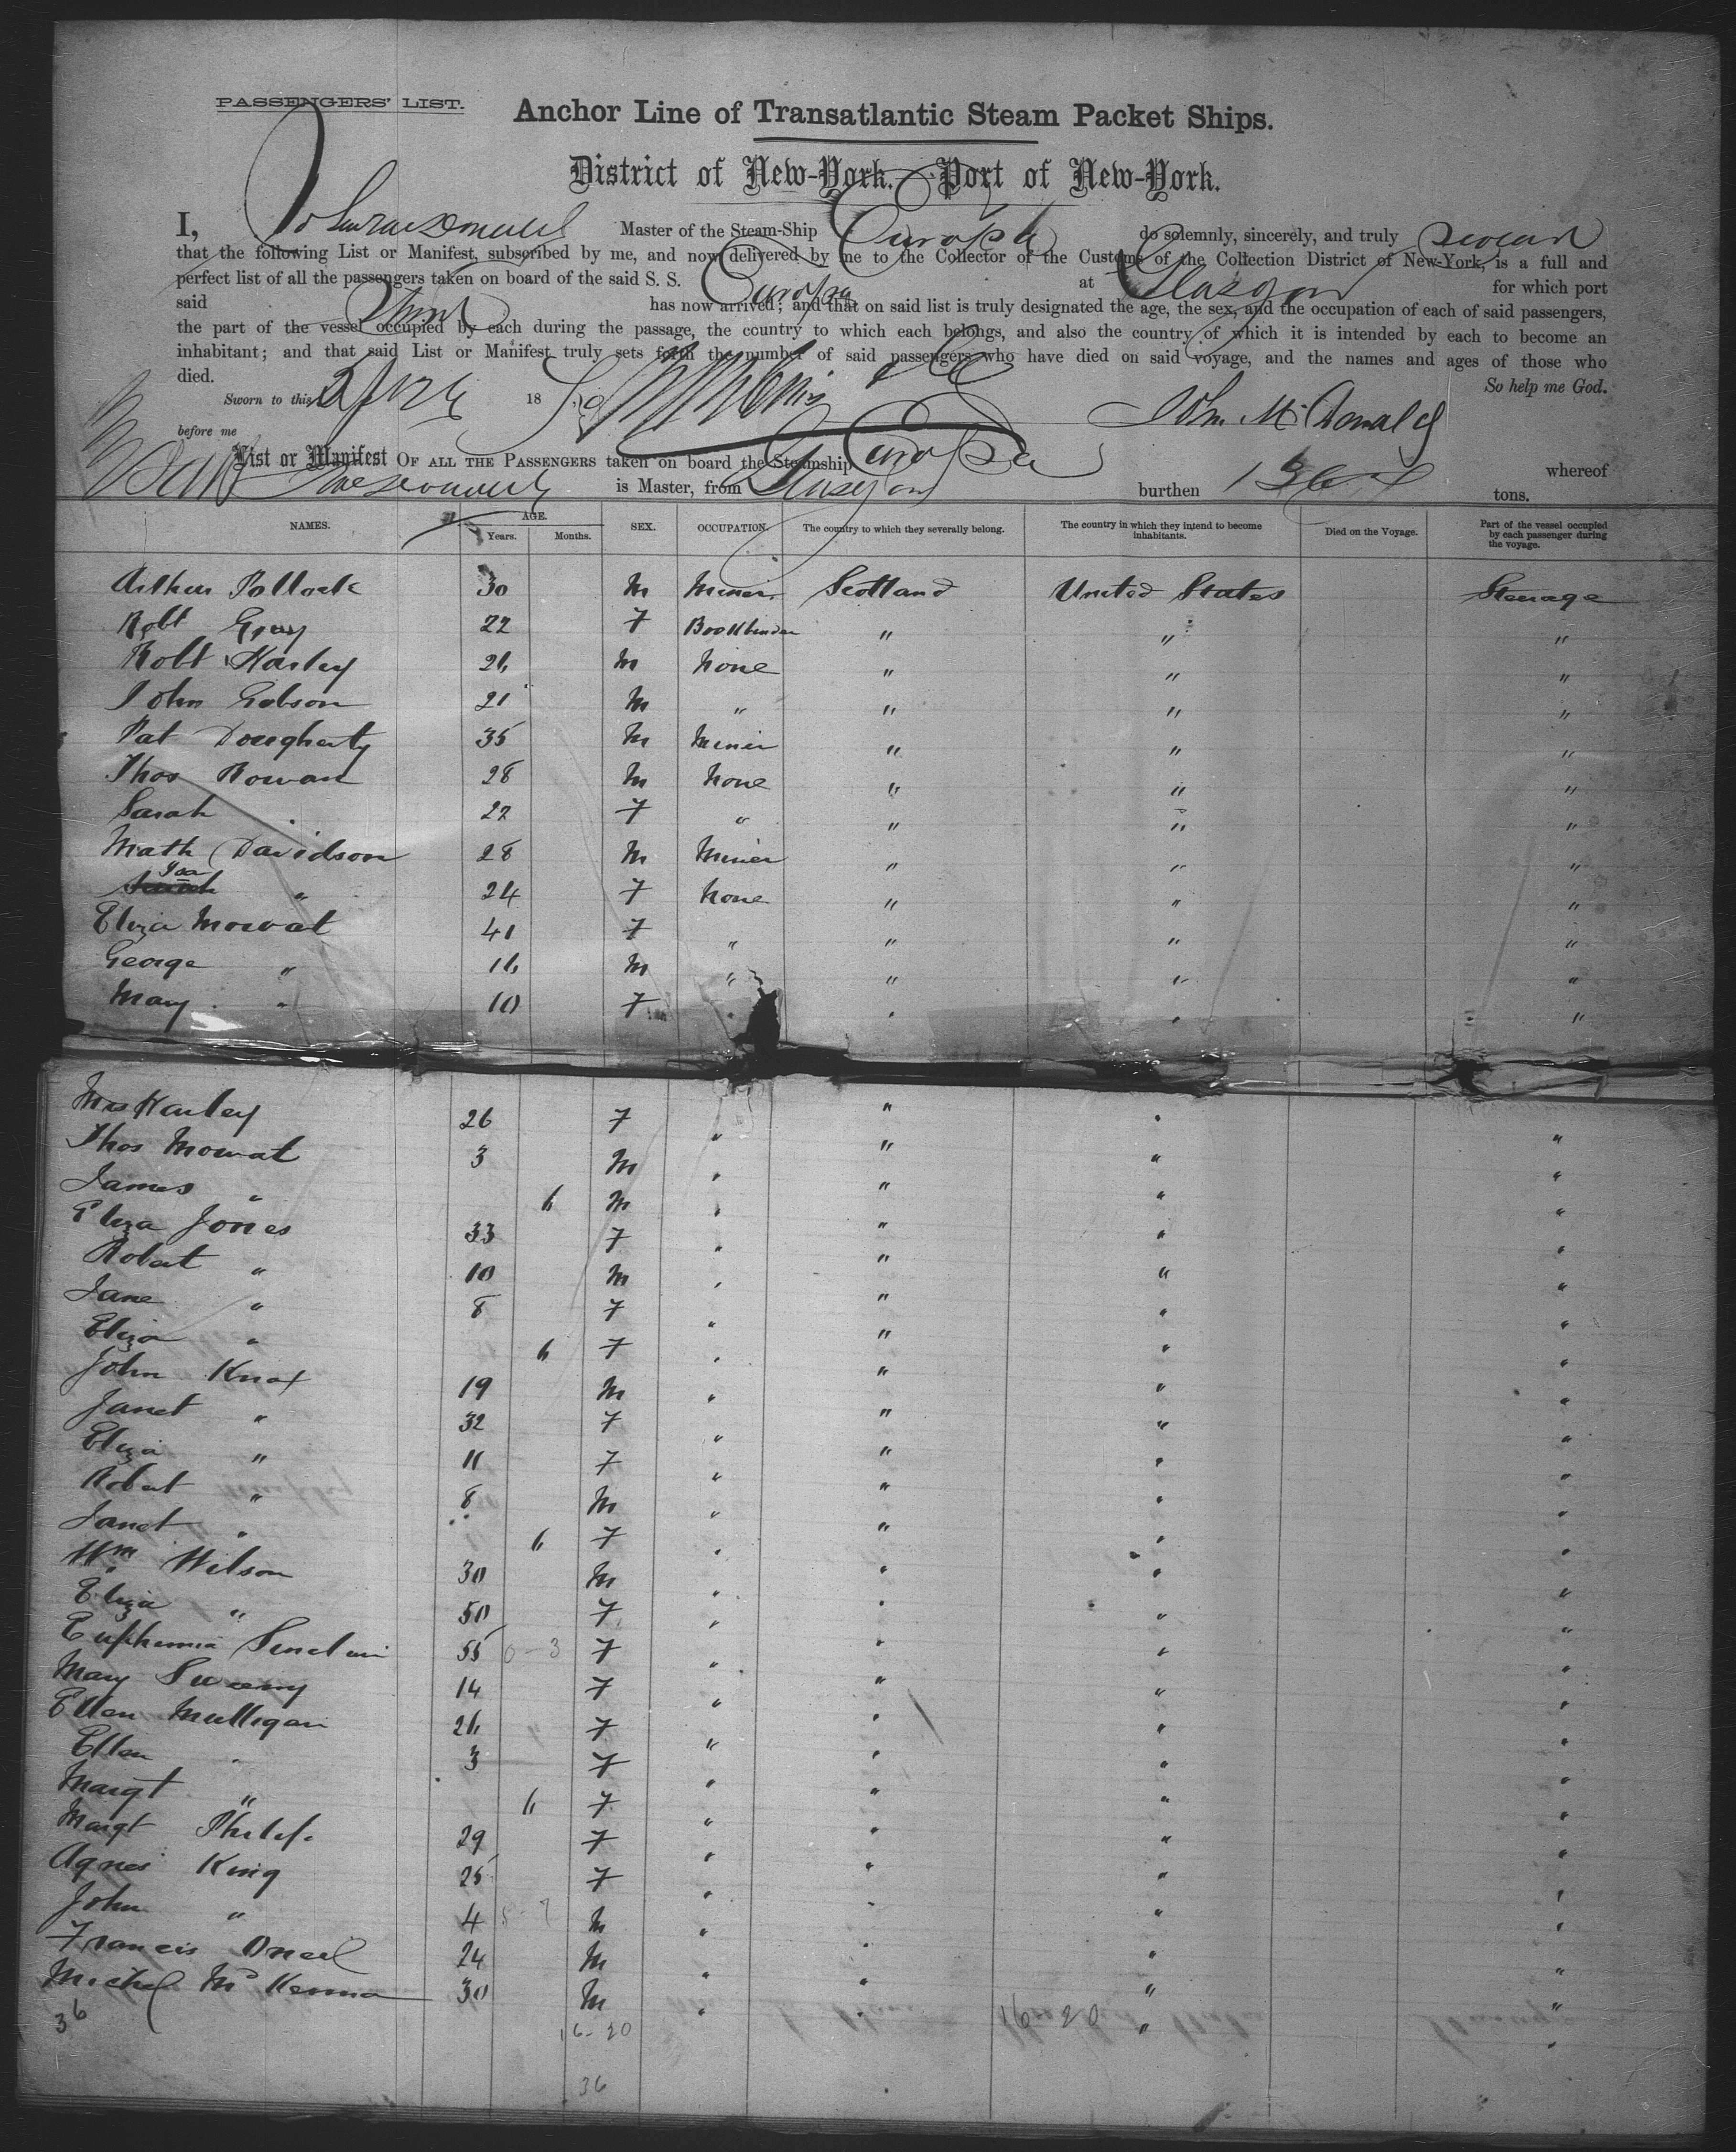 PASSENGERS' LIST.
Anchor Line of Transatlantic Steam Packet Ships.
District of New-York.—Port of New-York.
I, John MacDonald Master of the Steam-Ship Europa do solemnly, sincerely, and truly swear
that the following List or Manifest, subscribed by me, and now delivered by me to the Collector of the Customs of the Collection District of New-York, is a full and
perfect list of all the passengers taken on board of the said S. S. Europa at Glasgow for which port
said Ship has now arrived; and that on said list is truly designated the age, the sex, and the occupation of each of said passengers,
the part of the vessel occupied by each during the passage, the country to which each belongs, and also the country of which it is intended by each to become an
inhabitant; and that said List or Manifest truly sets forth the number of said passengers who have died on said voyage, and the names and ages of those who
died. So help me God.
Sworn to this 18 John McDonald
before me
List or Manifest OF ALL THE PASSENGERS taken on board the Steamship Europa whereof
is Master, from Glasgow burthen tons.
NAMES. AGE. Years. Months. SEX. OCCUPATION. The country to which they severally belong. The country in which they intend to become inhabitants. Died on the Voyage. Part of the vessel occupied by each passenger during the voyage.
Arthur Pollock 30 M Miner Scotland United States Steerage
Robt Gray 22 F Bookbinder " " "
Robt Harley 26 M None " " "
John Gibson 21 M " " " "
Pat Dougherty 35 M Miner " " "
Thos Rowan 28 M None " " "
Sarah 22 F " " " "
Math Davidson 28 M Miner " " "
" 24 F None " " "
Eliza Mowat 41 F " " " "
George " 16 M " " " "
Mary " 10 F " " "
Mrs Harley 26 F " " " "
Thos Mowat 3 M " " " "
James " 6 M " " " "
Eliza Jones 33 F " " " "
Robert " 10 M " " " "
Jane " 8 F " " " "
Eliza " 6 F " " " "
John Knox 19 M " " " "
Janet " 32 F " " " "
Eliza " 11 F " " " "
Robert " 8 M " " " "
Janet " 6 F " " " "
Wm Wilson 30 M " " " "
Eliza " 50 F " " " "
Euphemia Sinclair 55 0-3 F " " " "
Mary Sweeny 14 F " " " "
Ellen Mulligan 26 F " " " "
Ellen " 3 F " " " "
Margt " 6 F " " " "
Margt Philip 29 F " " " "
Agnes King 25 F " " " "
John " 4 M " " " "
Francis Oneil 24 M " " " "
Michel McKenna 30 M " " " "
36 16-20 16 20
36